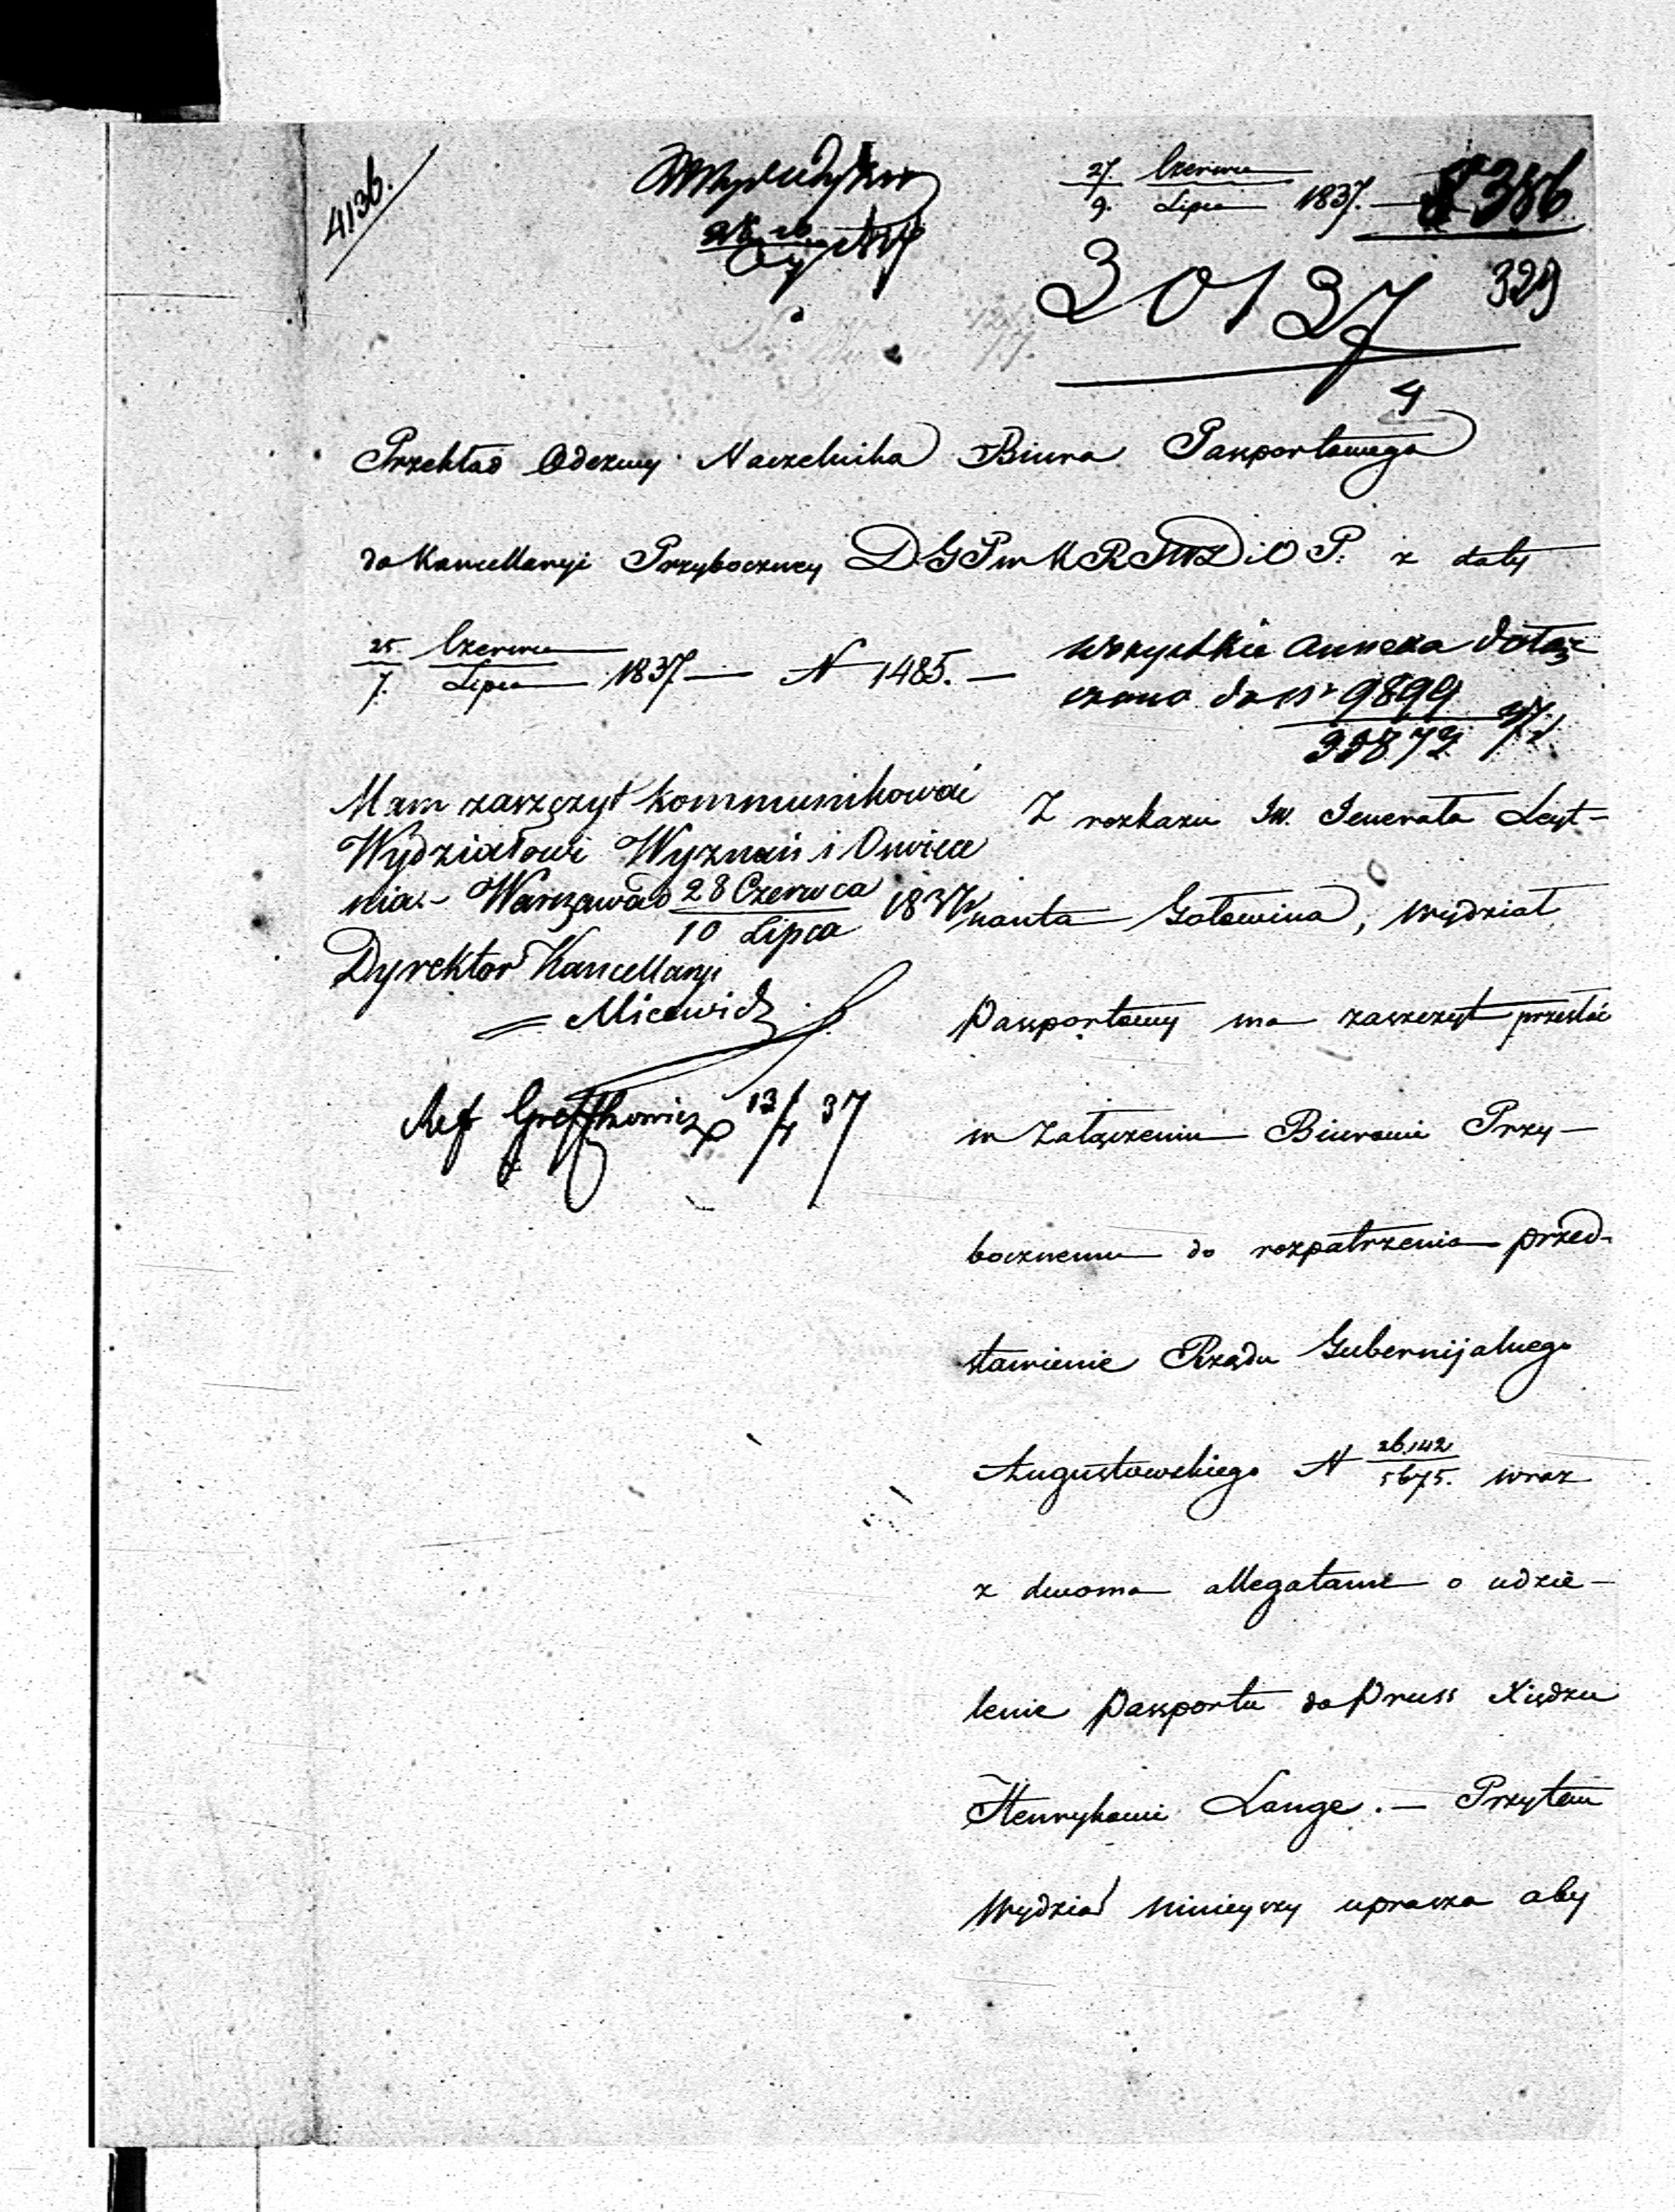 4136.
27. Czerwca
9. Lipca 1837.
386
329
30137
4
Przekład Odezwy Naczelnika Biura Pasportowego
do Kancellaryi Przyboczney D G P w K R S W D i O P. z daty
25 Czerwca
7. Lipca 1837 — N 1485. —
wszystkie annexa dołą-
czono do Nr 9899
Mam zaszczyt kommunikować
Wydziałowi Wyznań i Oświece
nia. - Warszawa d 28 Czerwca 1837
10 Lipca
Dyrektor Kancellaryi
Ref 13/7 37
Z rozkazu Jw. Jenerała Leyt-
nanta Gołowina, wydział
Pasportowy ma zaszczyt przesłać
w załączeniu Biurowi Przy-
bocznemu do rozpatrzenia przed-
stawienie Rządu Gubernijalnego
Augustowskiego N 26,142/5675. wraz
z dwoma allegatami o udzie-
lenie pasportu do Pruss Xiędzu
Henrykowi Lange. — Przytem
wydział ninieyszy uprasza aby